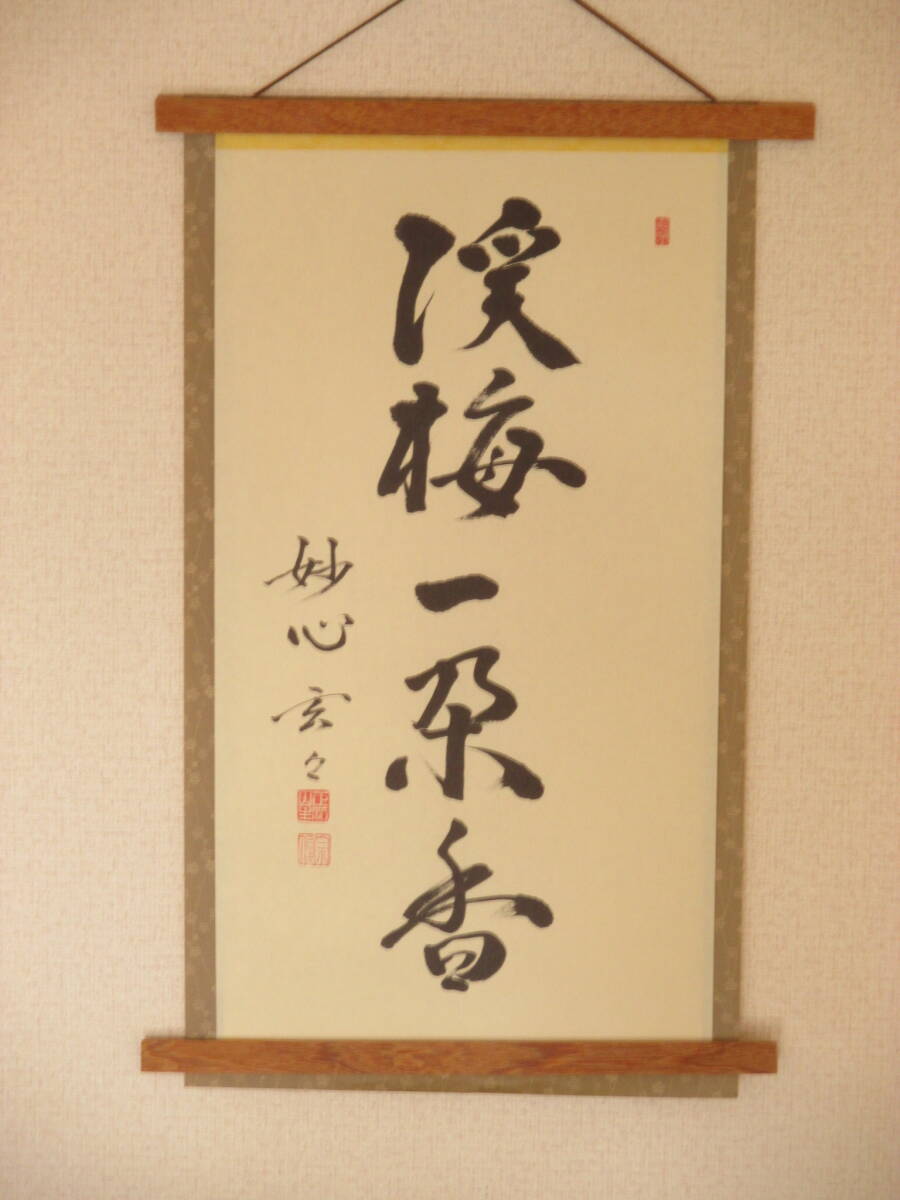 渓梅一朶香
妙心玄々